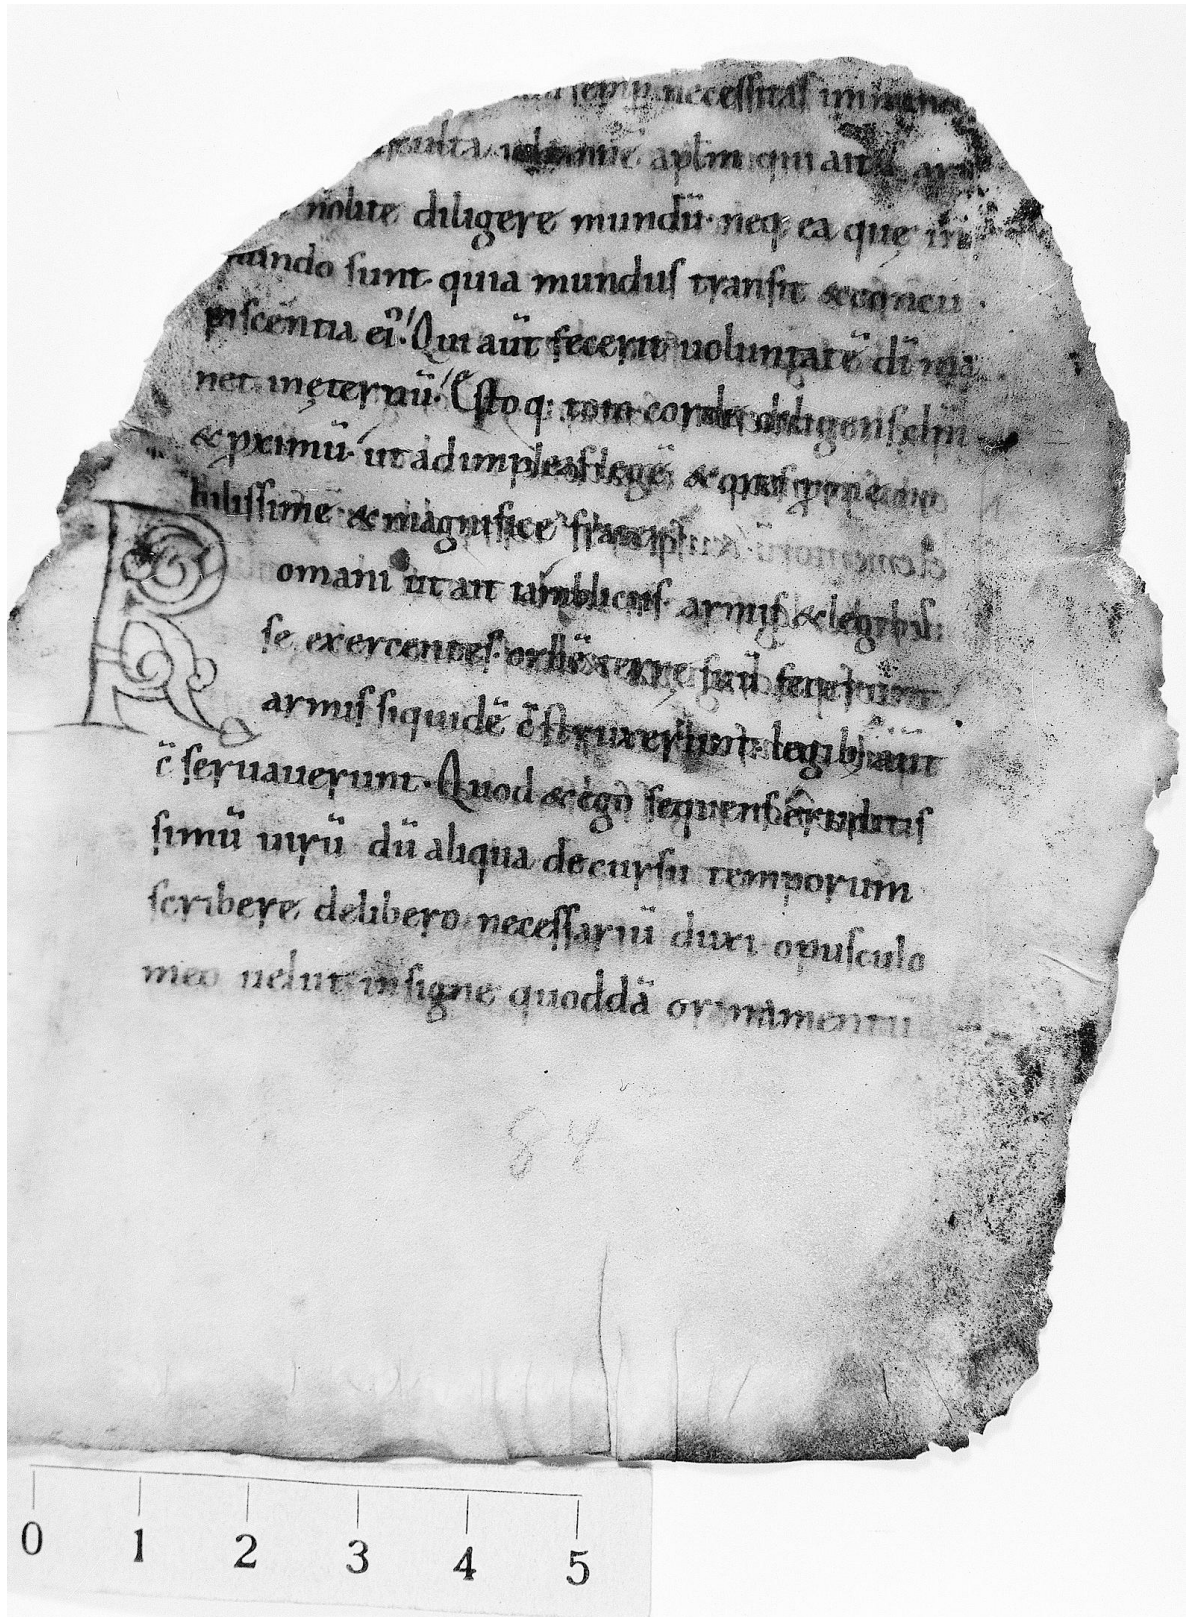 semp necessitas
aplm qui ait
nolite diligere mundū· neq; ea quę in
mundo sunt· quia mundus transit & concu
piscentia ei. Qui aūt fecerit uoluntatē dī ma
net in ęternū. Esto q; toto corde diligens dm̄
& pximū· ut adimpleas legē
bilissime & magnifice
Romani ut ait iamblicus· armis & legibus
se exercentes· orbē terre suū fecerunt
armis siquidē c̄struxerunt· legib; aūt
c̄seruauerunt· Quod & ego sequens eruditis
simū uirū dū aliqua de cursu temporum
scribere delibero necessariū duxi opusculo
meo uelut insigne quoddā ornamentū
84
0 1 2 3 4 5